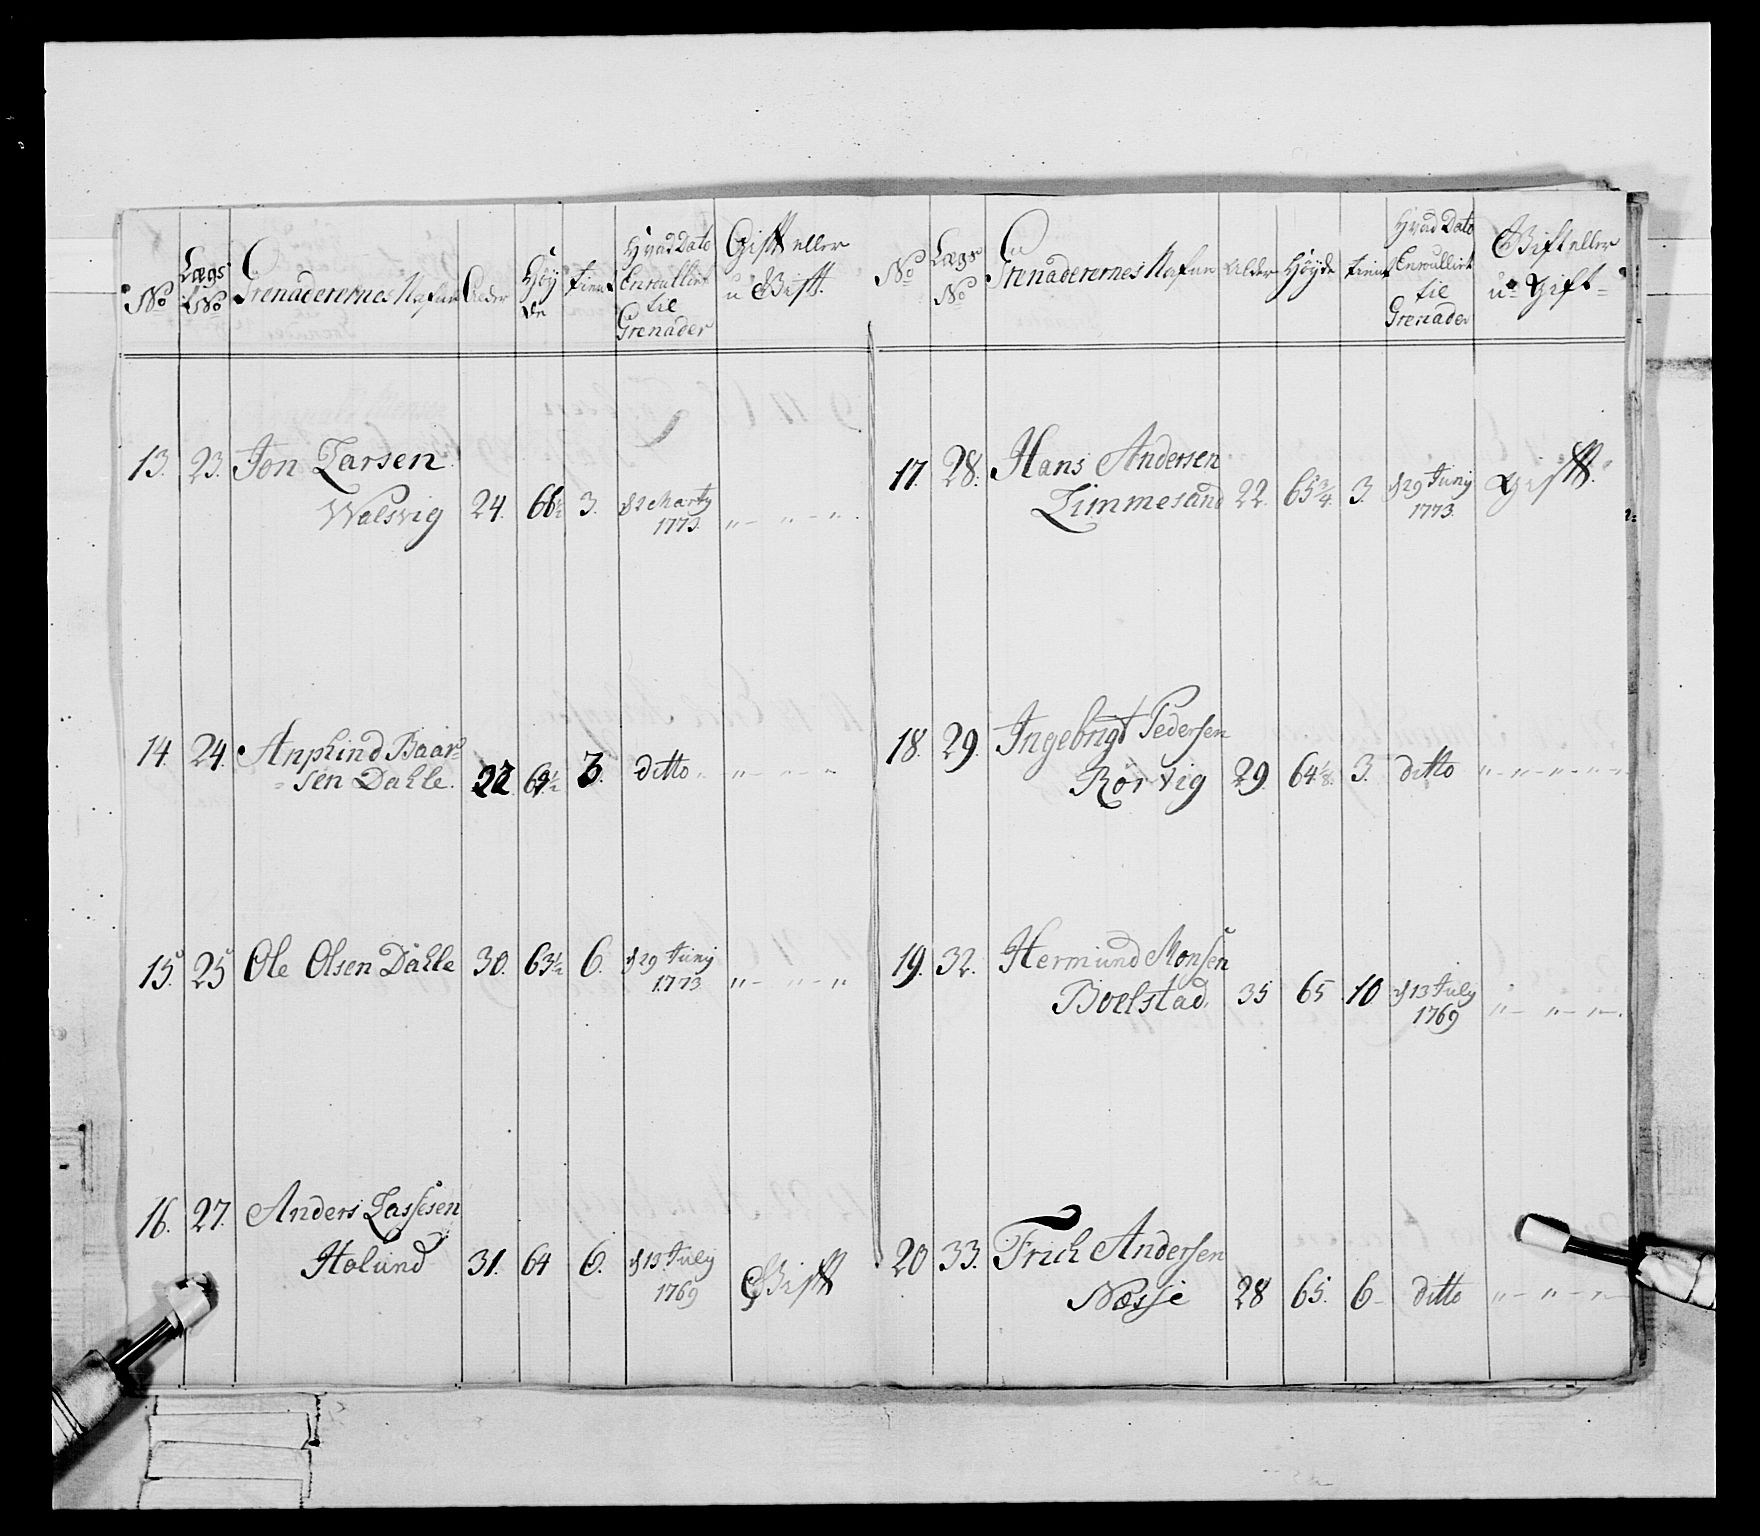 No
Lægs No
Grenaderernes Nafn
Alder
Høyde
tient
Hvad Dato Enroullirt til Grenader
Gift eller u Gift
13. 23. Jon Larsen
Walsvig 24. 66½ 3. d 2 Marty
1773. "- "- "
14. 24. Anphind Baar=
=sen Dahle. 6½ 3. ditto. "- "- "
15. 25 Ole Olsen Dahle 30. 63½ 6. d 29 Juny
1773. "- "- "
16. 27. Anders Lassesen
Holund 31. 64 6. d 13 July
1769 Gift
No
Lægs No
Grenaderernes Nafn
Alder
Høyde
tient
Hvad Dato Enroullirt til Grenader
Gift eller u= Gift=
17. 28. Hans Andersen
Limmesand 22. 65¾ 3. d 29 Juny
1773. Gift.
18. 29. Ingebrigt Pedersen
Rörvig 29. 64⅛ 3. ditto "- "- "- "- "
19. 32. Hermund Monsen
Boelstad. 35 65 10 d 13 July
1769 "- "- "-
20 33. Frich Andersen
Næsse 28 65. 6- ditto "- "- "-